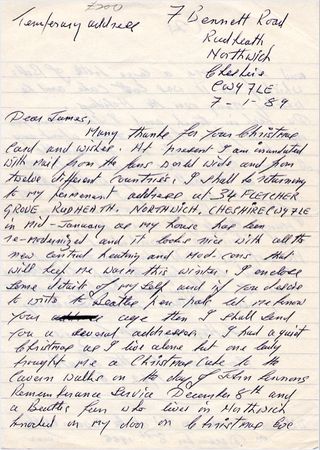 Temporary address
7 Bennett Road
Rudheath
Northwich
Cheshire
CW9 7LE
7-1-89
Dear James,
Many thanks for your Christmas
Card and wishes. At present I am inundated
with mail from the fans World Wide and from
twelve different countries. I shall be returning
to my permanent address at 34 FLETCHER
GROVE, RUDHEATH, NORTHWICH, CHESHIRE CW9 7LE
in Mid-January as my house has been
re-modernized and it looks nice with all the
new central heating and Mod-cons that
will keep me warm this winter. I enclose
some details of my self and if you decide
to write to Beatles Pen-Pals let me know
your age then I shall send
you a several addresses. I had a quiet
Christmas as I live alone but one lady
brought me a Christmas Cake to the
Cavern Walks on the day of John Lennons
Rememberance Service December 8th and
a Beatles fan who lives in Northwich
knocked on my door on Christmas Eve